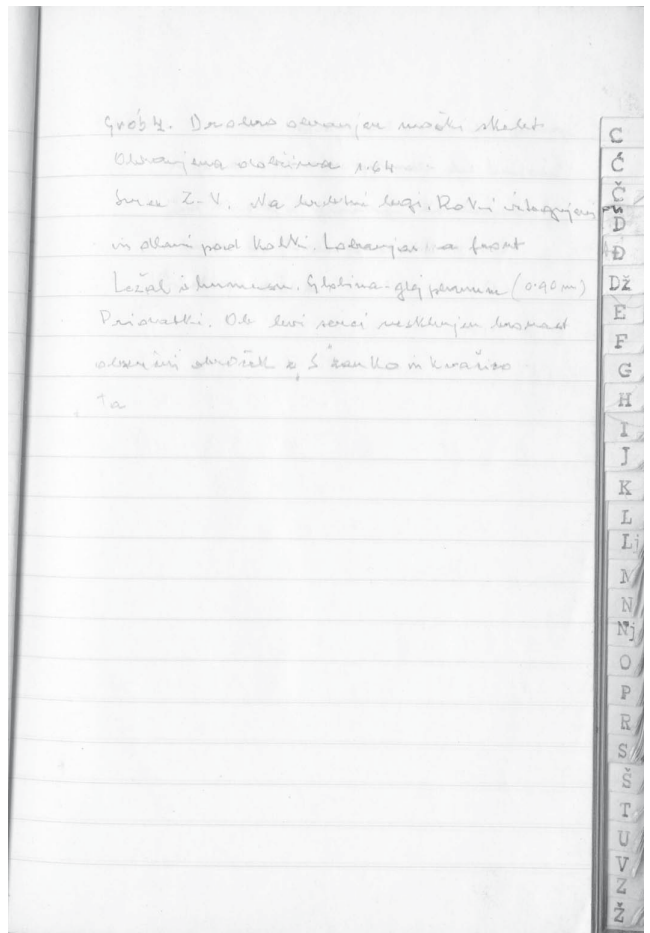 Grob 4. Dobro ohranjen moški skelet
Ohranjena dolžina 1.64
Smer Z-V. Na hrbtni legi. Roki iztegnjeni
in dlani pod kolki. Lobanja a front
Ležal s humusom. Globina glej (0.90 m)
Pridatki. Ob levi senci nesklenjen bronast
obsenčni obroček z S zanko in kvačico
Ta
C
Ć
Č
D
Đ
Dž
E
F
G
H
I
J
K
L
Lj
M
N
Nj
O
P
R
S
Š
T
U
V
Z
Ž